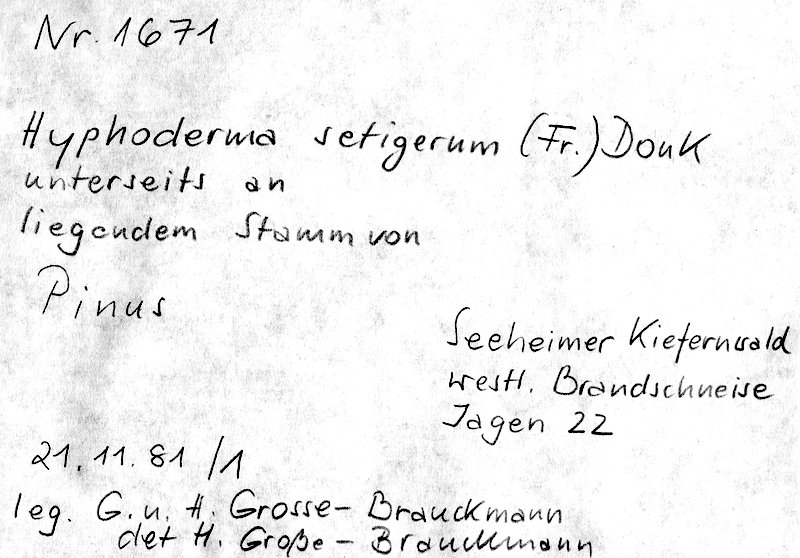 Nr. 1671
Hyphoderma setigerum (Fr.) Donk
unterseits an
liegendem Stamm von
Pinus
Seeheimer Kiefernwald
westl. Brandschneise
Jagen 22
21.11.81/1
leg. G. u. H. Grosse-Brauckmann
det H. Große-Brauckmann